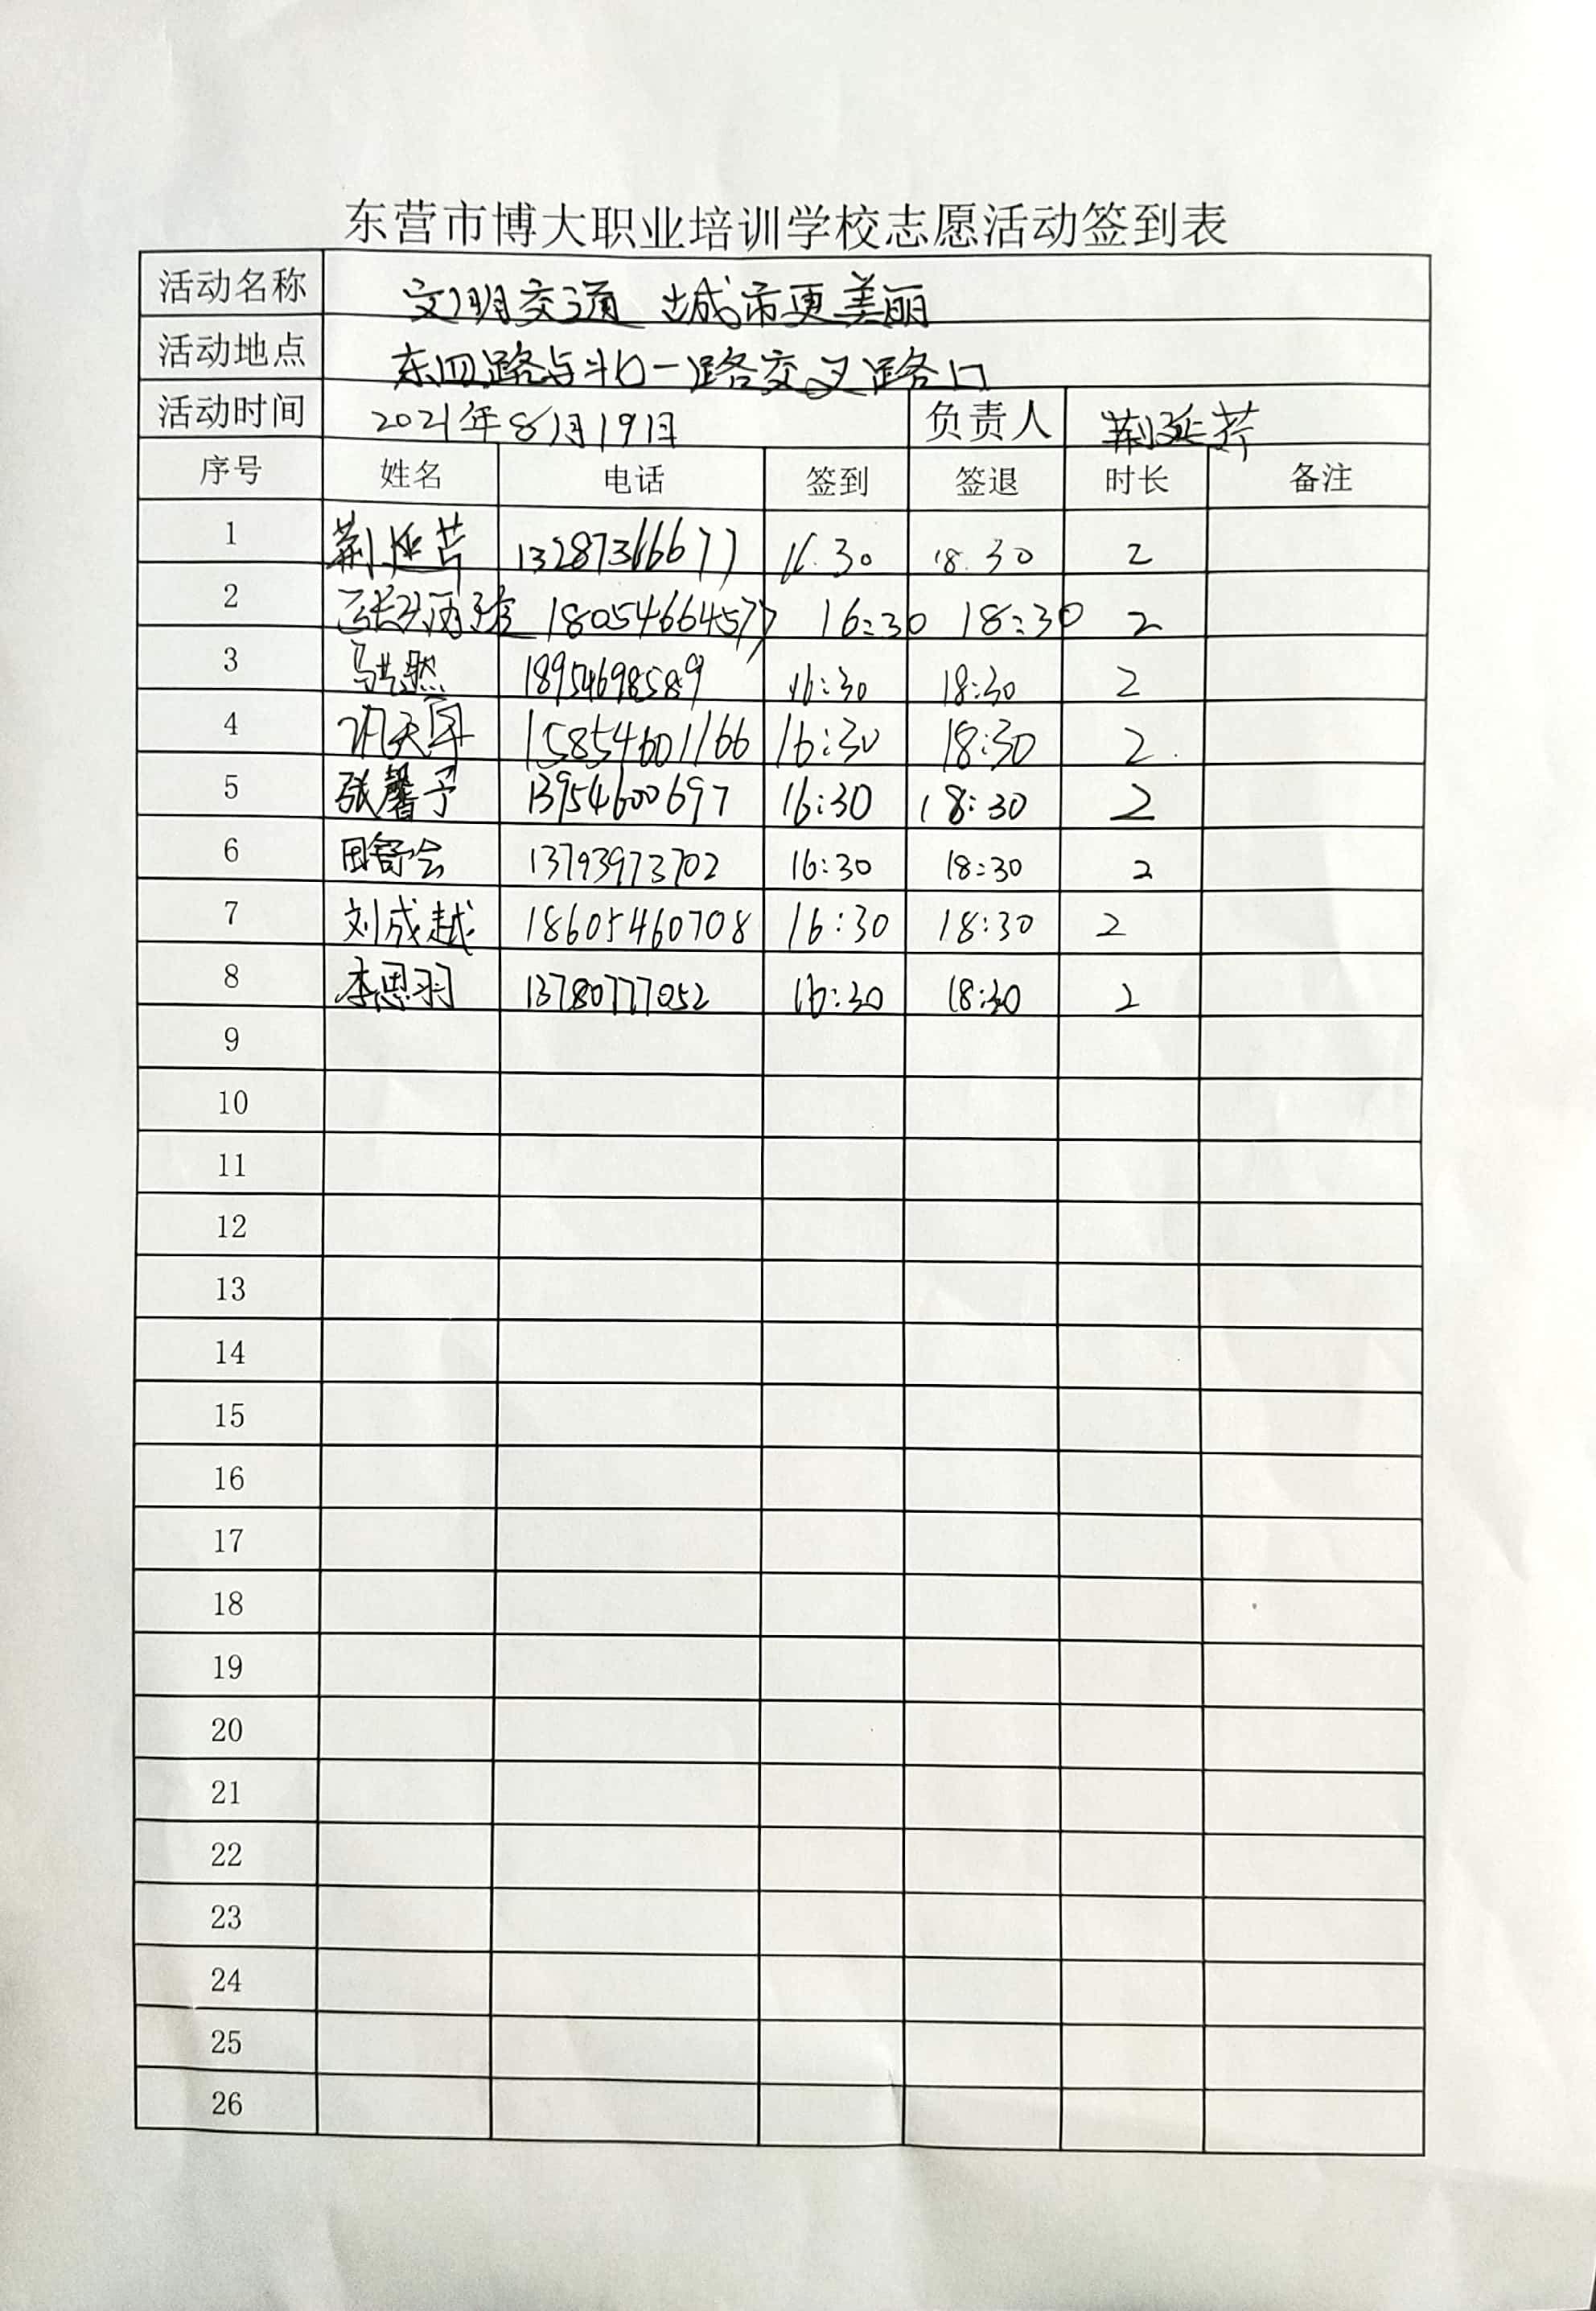 东营市博大职业培训学校志愿活动签到表
活动名称 文明交通 城市更美丽
活动地点 东四路与北一路交叉路口
活动时间 2021年8月19日 负责人 荆延芹
序号 姓名 电话 签到 签退 时长 备注
1 荆延芹 13287366677 16.30 18.30 2
2 18054664577 16:30 18:30 2
3 马浩然 18954698589 16:30 18:30 2
4 15854601166 16:30 18:30 2
5 张馨予 13954600697 16:30 18:30 2
6 田舒会 13793973702 16:30 18:30 2
7 刘成越 18605460708 16:30 18:30 2
8 李思羽 13780777052 16:30 18:30 2
9
10
11
12
13
14
15
16
17
18
19
20
21
22
23
24
25
26